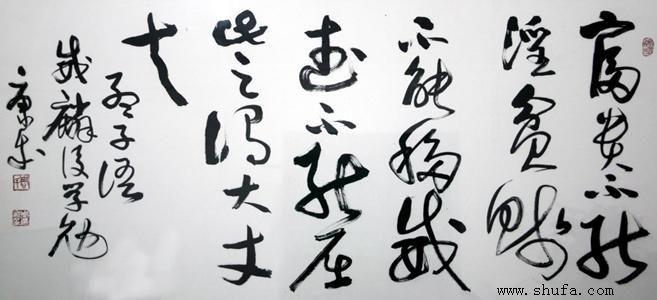 富贵不能
淫贫贱
不能移威
武不能屈
此之谓大丈
夫
孟子语
麟後学勉
康
www.shufa.com